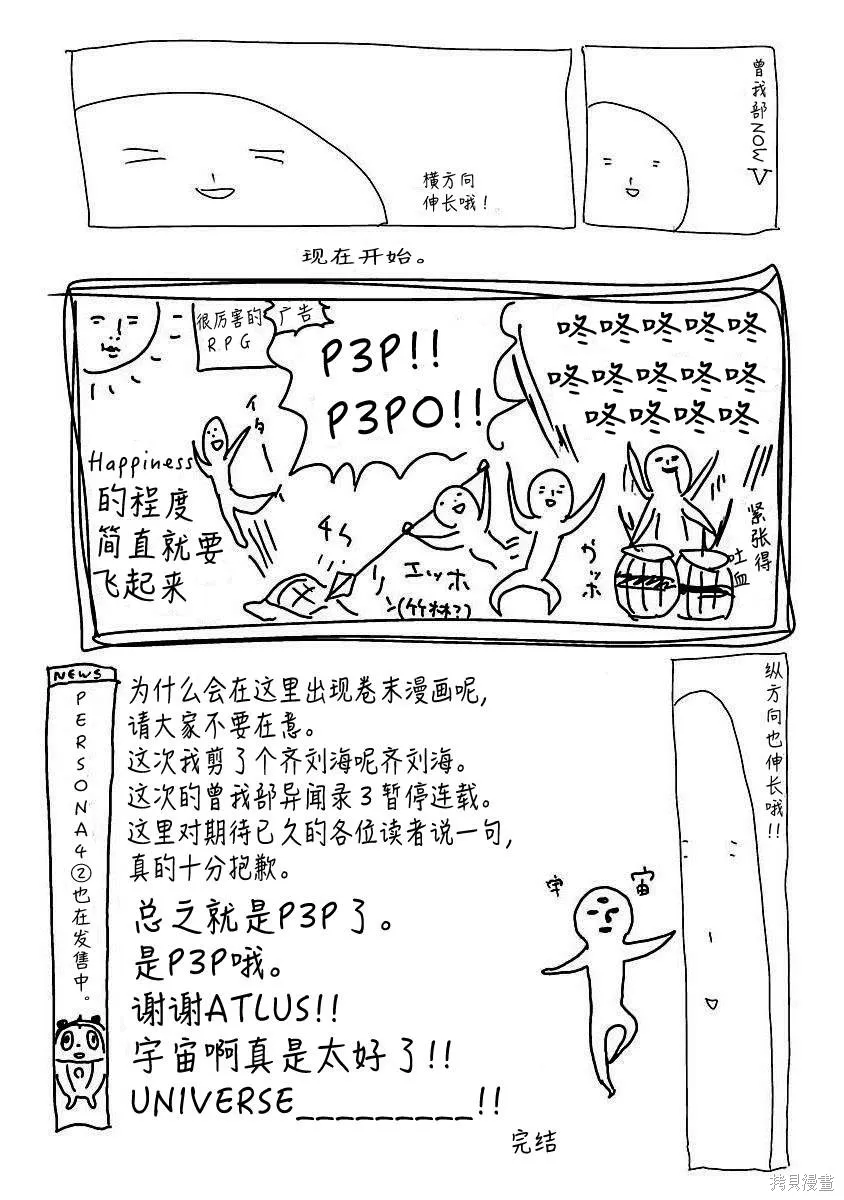 曾我部NOW
横方向
伸长哦！
现在开始。
很厉害的
RPG
广告
P3P!!
P3PO!!
咚咚咚咚咚
咚咚咚咚咚
咚咚咚咚
Happiness
的程度
简直就要
飞起来
イタ
エッホ
(竹林??)
ガッホ
紧张得
吐血
NEWS
PERSONA4②也在发售中。
为什么会在这里出现卷末漫画呢，
请大家不要在意。
这次我剪了个齐刘海呢齐刘海。
这次的曾我部异闻录3暂停连载。
这里对期待已久的各位读者说一句，
真的十分抱歉。
总之就是P3P了。
是P3P哦。
谢谢ATLUS!!
宇宙啊真是太好了!!
UNIVERSE_________!!
完结
宇宙
纵方向也伸长哦!!
拷貝漫畫